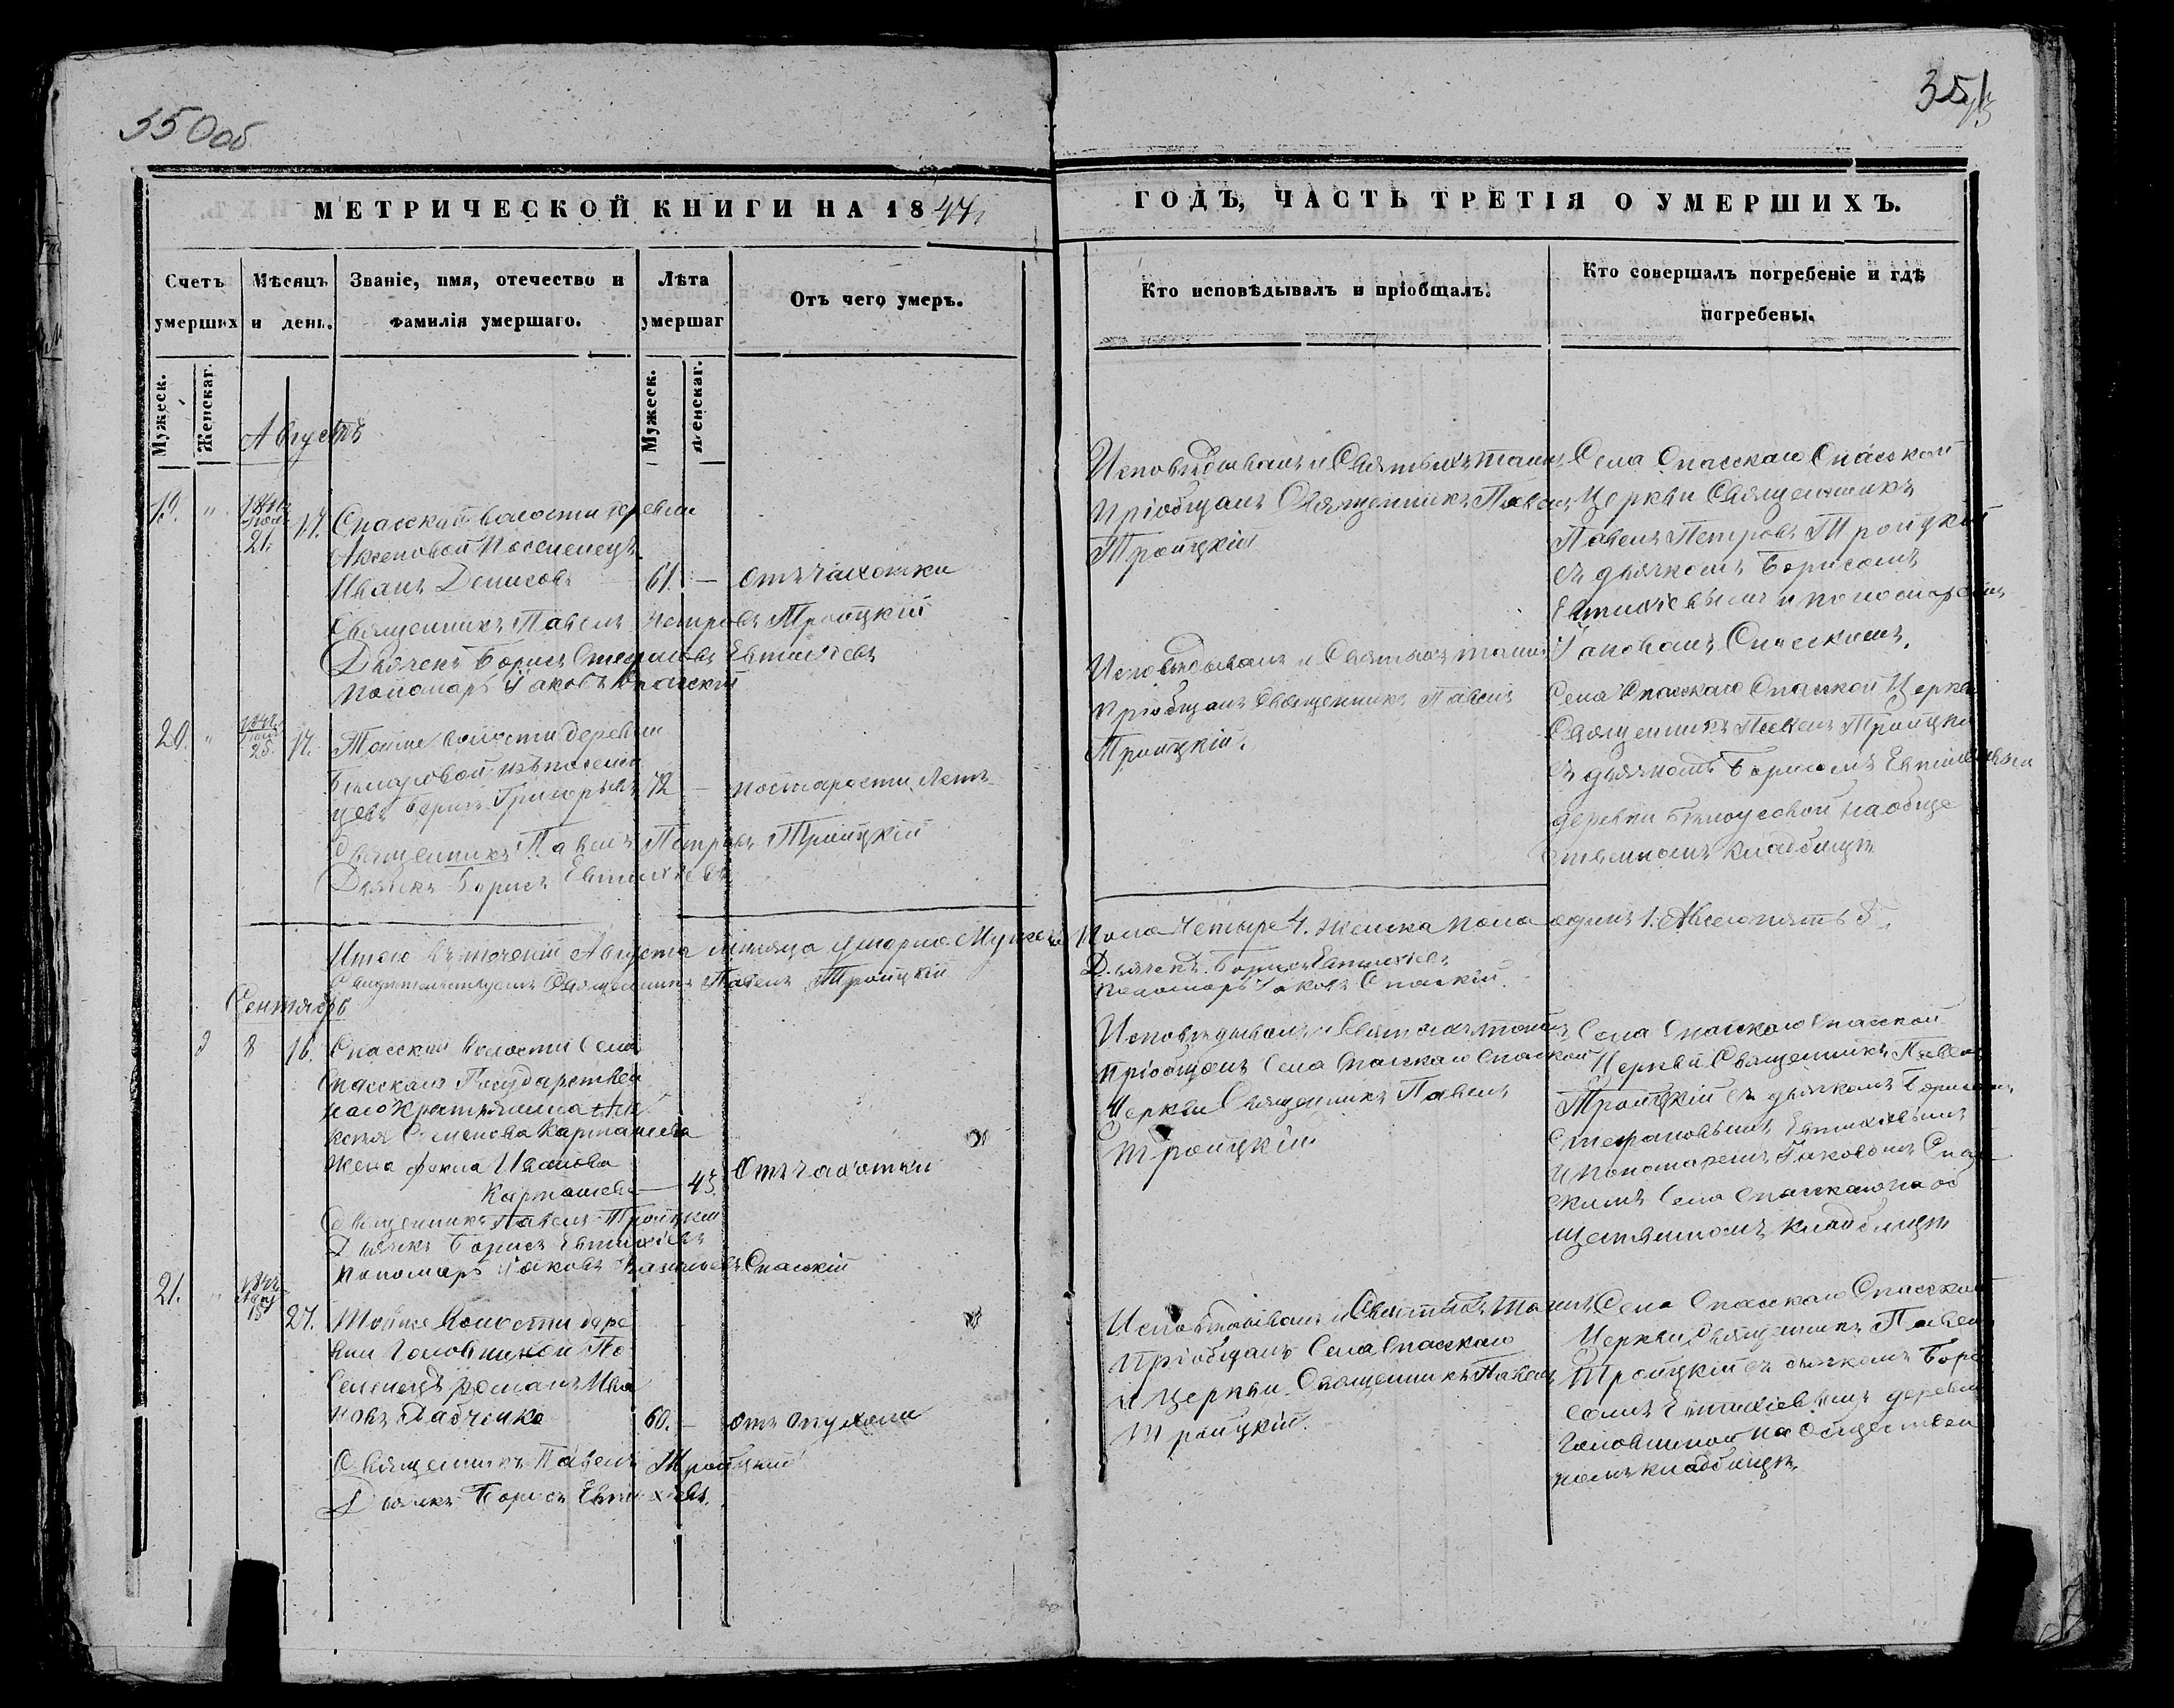 350об
351
МЕТРИЧЕСКОЙ КНИГИ НА 1844
ГОДЪ, ЧАСТЬ ТРЕТІЯ О УМЕРШИХЪ.
Счетъ умерших
Мѣсяцъ и день.
Званіе, имя, отечество и фамилія умершаго.
Лѣта умершаг
Отъ чего умеръ.
Кто исповѣдывалъ и пріобщалъ.
Кто совершалъ погребеніе и гдѣ погребены.
Мужеск.
Женскаг.
Мужеск.
Женскаг.
Августъ
19. " 21. 17. Спасской волости деревни
Аксеновой Поселенецъ
Иванъ Денисовъ 61. — отъ чахотки
Священникъ Павелъ Петровъ Троицкій
Дьячекъ Борисъ Стефановъ Евтихіевъ
Пономарь Іаковъ Спасскій
Исповѣдывалъ и Святыхъ таинъ
Пріобщалъ Священникъ Павелъ
Троицкій
Села Спасскаго Спасской
Церкви Священникъ
Павелъ Петровъ Троицкій
съ дьячкомъ Борисомъ
Евтихіевымъ и пономаремъ
Іаковомъ Спасскимъ.
20. " 25. 17. Тойже волости деревни
изъ поселен
цевъ Борисъ Григорьевъ 72 — по старости летъ
Священникъ Павелъ Петровъ Троицкій
Дьячекъ Борисъ Евтихіевъ
Исповѣдывалъ и Святыхъ таинъ
Пріобщалъ Священникъ Павелъ
Троицкій.
Села Спасскаго Спасской Церкви
Священникъ Павелъ Троицкій
съ дьячкомъ Борисомъ Евтихіевымъ
деревни Белоусовой на обще
ственномъ кладбищѣ
Итого въ теченіи Августа месяца умерло Мужеска
Пола Четыре 4. женска пола один 1. А всего пять 5.
Свидетельствуемъ Священникъ Павелъ Троицкій
Дьячекъ Борисъ Евтихіевъ
Пономарь Іаковъ Спаский.
Сентябрь
8 16. Спасской волости Села
Спасскаго Государствен
наго Крестьянина
Семенова Карташева
жена Фекла Иванова
Карташева — 43. Отъ чахотки
Священникъ Павелъ Троицкій
Дьячекъ Борисъ Евтихіевъ
Пономарь Іаковъ Васильевъ Спасскій
Исповѣдывалъ и Святыхъ таинъ
Пріобщалъ Села Спасскаго Спаской
Церкви Священникъ Павелъ
Троицкій
Села Спасскаго Спасской
Церкви Священникъ Павелъ
Троицкій съ дьячкомъ Борисомъ
Стефановымъ Евтихіевымъ
и Пономаремъ Іаковомъ Спас
скимъ Села Спасскаго на об
щественномъ кладбищѣ
21. 27. Тойже Волости дере
вни Головниной По
селенецъ Романъ Ива
новъ 60. — отъ опухоли
Священникъ Павелъ Троицкій
Дьячекъ Борисъ Евтихіевъ.
Исповѣдывалъ и Святыхъ Таинъ
Пріобщалъ Села Спасскаго
Церкви Священникъ Павелъ
Троицкій.
Села Спасскаго Спасской
Церкви Священникъ Павелъ
Троицкій съ дьячкомъ Бори
сомъ Евтихіевымъ деревни
Головниной на Обществен
номъ кладбищѣ.